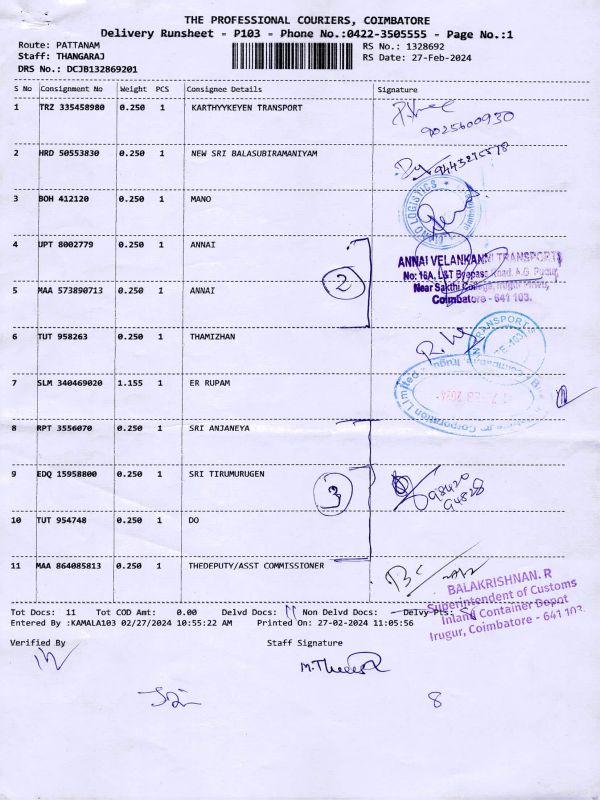 THE PROFESSIONAL COURIERS, COIMBATORE
Delivery Runsheet - P103 - Phone No.:0422-3505555 - Page No.:1
Route: PATTANAM RS No.: 1328692
Staff: THANGARAJ RS Date: 27-Feb-2024
DRS No.: DCJB132869201
S No Consignment No Weight PCS Consignee Details Signature
1 TRZ 335458980 0.250 1 KARTHYYKEYEN TRANSPORT
9025600930
2 HRD 50553830 0.250 1 NEW SRI BALASUBIRAMANIYAM
3 BOH 412120 0.250 1 MANO
LOGISTICS
4 UPT 8002779 0.250 1 ANNAI
ANNAI VELANKANNI TRANSPORT
No: 16A, L&T Byepass Road, A.G. Pudur,
2
5 MAA 573890713 0.250 1 ANNAI
Near Sakthi College, Irugur
Coimbatore - 641 103.
6 TUT 958263 0.250 1 THAMIZHAN
TRANSPORT
7 SLM 340469020 1.155 1 ER RUPAM
Corporation Limited
8 RPT 3556070 0.250 1 SRI ANJANEYA
9 EDQ 15958800 0.250 1 SRI TIRUMURUGEN
3
98420
94828
10 TUT 954748 0.250 1 DO
11 MAA 864085813 0.250 1 THEDEPUTY/ASST COMMISSIONER
BALAKRISHNAN. R
Superintendent of Customs
Inland Container Depot
Irugur, Coimbatore - 641 103.
Tot Docs: 11 Tot COD Amt: 0.00 Delvd Docs: 11 Non Delvd Docs: Delvy Pts:
Entered By :KAMALA103 02/27/2024 10:55:22 AM Printed On: 27-02-2024 11:05:56
Verified By Staff Signature
8